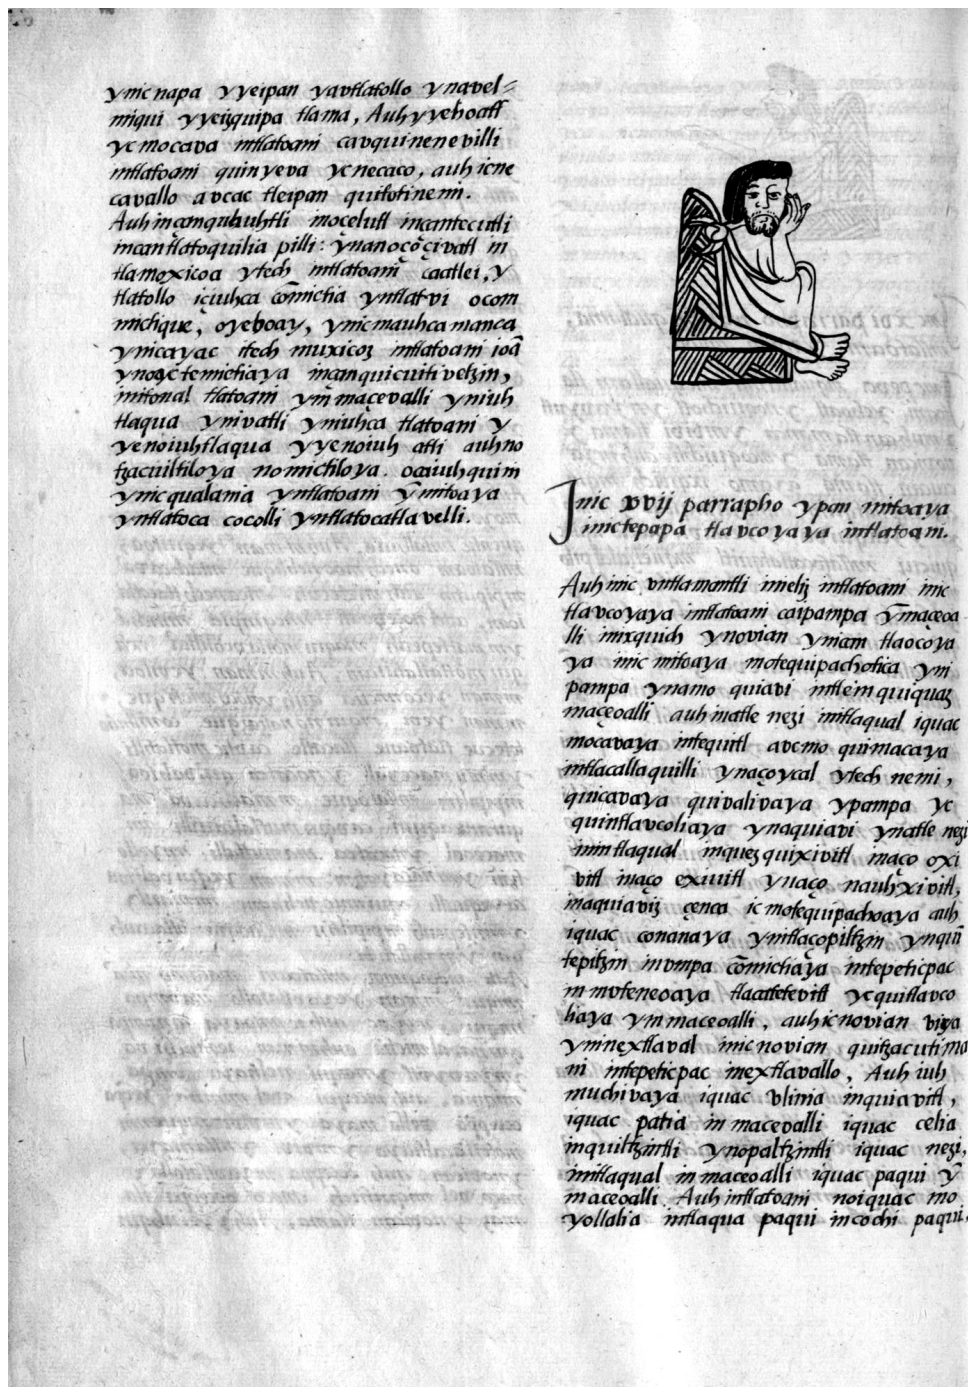 ynic napa yyeipan yavtlatollo ynavel=
miqui yyeijquipa tlama, Auh yyehoatl
yc mocava intlatoani cavquinenevilli
intlatoani quinyeva yc necaco, auh icne
cavallo avcac tleipan quitotinemi.
Auh inçanquhuhtli moçelutl incantecutli
incantlatoquilia pilli: ynanoçoçivatl in
tlamoxicoa ytech intlatoani caatlei, y
tlatollo içiuhca cōmictia yntlatvi ocom
mictique, oyehoay, ynic mauhca manca
ynicayac itech muxicoz intlatoani ioā
temictiaya incanquicuitivetzin,
initonal tlatoani ym̄ maçevalli yniuh
tlaqua ynivatli yniuhca tlatoani y
yenoiuhtlaqua yyenoiuh atli auhno
tzacuiltiloya nomictiloya. ocaiuhquim
ynic qualania yntlatoani ȳmitoaya
yntlatoca cocolli yntlatocatlavelli.
Inic xvij parrapho ypan mitoaya
inictepapa tlavcoyaya intlatoani.
Auh inic vntlamantli inieliz intlatoani inic
tlavcoyaya intlatoani caipampa ȳmaçeoa
lli inixquich ynovian yniam tlaocoya
ya inic mitoaya motequipachotica yni
pampa ynamo quiavi intleinquiquaz
maçeoalli auh inatle nezi intlaqual iquac
mocavaya intequitl avcmo quimacaya
intlacallaquilli ynaçoycal ytech nemi,
quicavaya quivalivaya ypampa yc
quintlavcoliaya ynaquiavi ynatle nezi
inintlaqual inquezquixivitl maço oxi
vitl inaço exiuitl ynaço nauhxivitl,
inaquiaviz çenca ic motequipachoaya auh
iquac conanaya yntlacopiltzin ynquin̄
tepitzin inumpa cōmictiaya intepeticpac
inmoteneoaya tlacatetevitl ycquitlavco
liaya ynmaceoalli, auh icnovian viya
ymnextlaval inicnovian quitzacutima
ni intepeticpac inextlavallo, Auh iuh
muchivaya iquac vlinia inquiavitl,
iquac patia in macevalli iquac celia
inquiltzintli ynopaltzintli iquac nezi,
inintlaqual inmaceoalli iquac paqui ȳ
maceoalli. Auh intlatoani noiquac mo
yollalia intlaqua paqui incochi paqui,